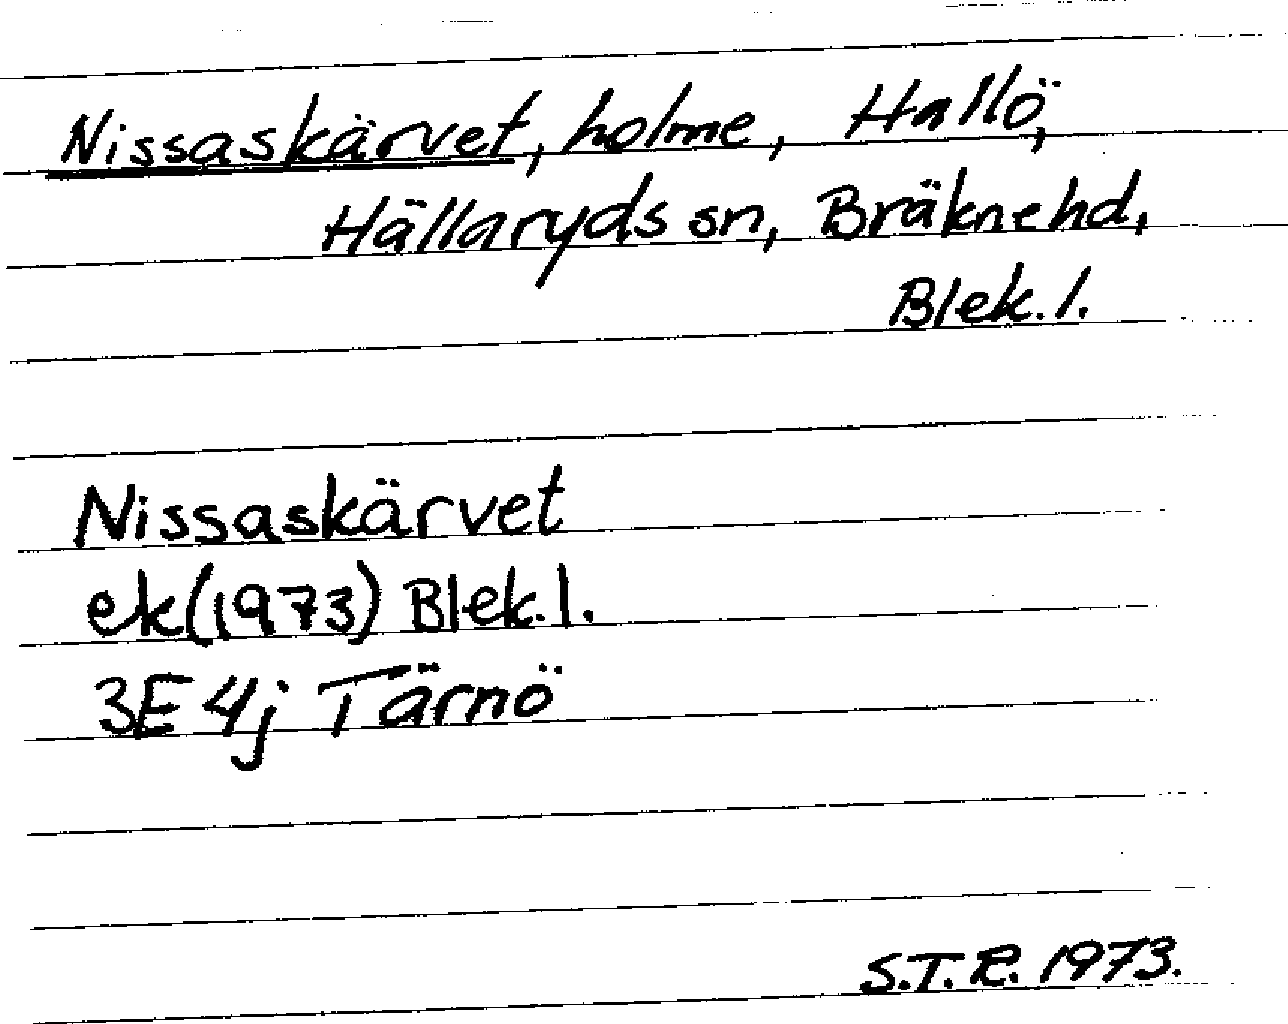 Nissaskärvet, holme, Hallö,
Hällaryds sn, Bräknehd,
Blek.l.
Nissaskärvet
ek(1973) Blek.l.
3E 4j Tärnö
S.T.R. 1973.